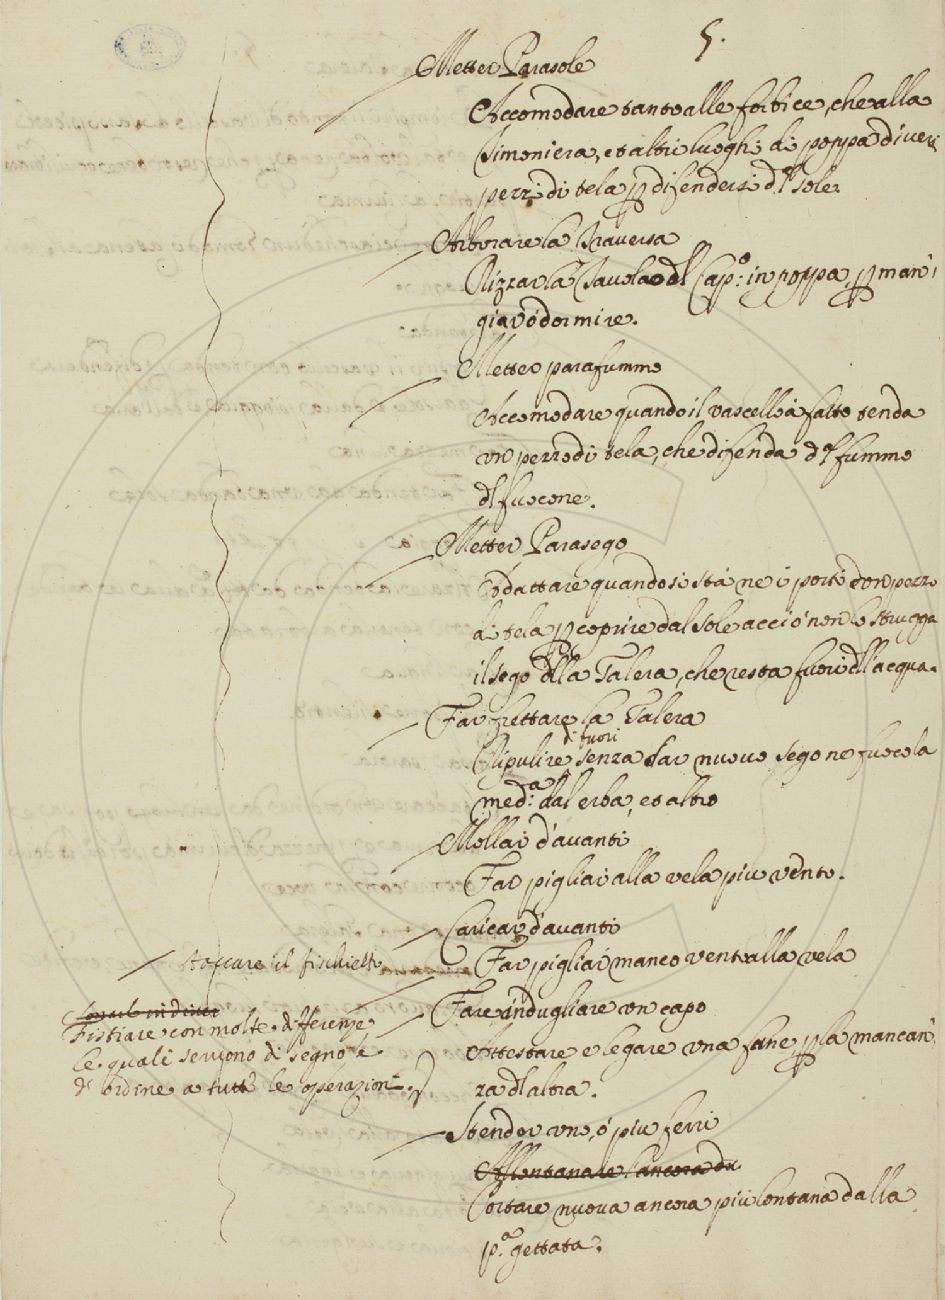 5.
Metter Parasole
Accomodare tanto alle forbice, che alla
timoniera, et altri luoghi di poppa diversi
pezzi di tela p difendersi dl sole.
Arborare la Traversa
Rizzar la Tavola dl Cap.o in poppa, p man:
giar ó dormire.
Metter parafummo
Accomodare quando il vascello á fatto tenda
un pezzo di tela, che difenda dl fummo
dl fuocone.
Metter Parasego
Adattare quando si stá ne i porti un pezzo
di tela p coprire dal sole acció non lo strugga
il sego dlla Galera, che resta fuori dll acqua.
Far frettare la Galera
Ripulire di fuori senza dar nuovo sego ne fuoco la
med.a dal erba, et altro
Mollar d'avanti
Far pigliar alla vela piu vento.
Caricar d'avanti
Far pigliar manco vento alla vela
toccare il fischietto
Fistiare con molte differenze
le quali servono di segno é
d'ordine a tutte le operazioni.
Fare indugliare un capo
Attestare e legare una fane p la mancan:
za dl altra.
Stender uno, ó piu ferri
Allontanare l'ancora da
Portare nuova ancora piu lontana dalla
p.a gettata.